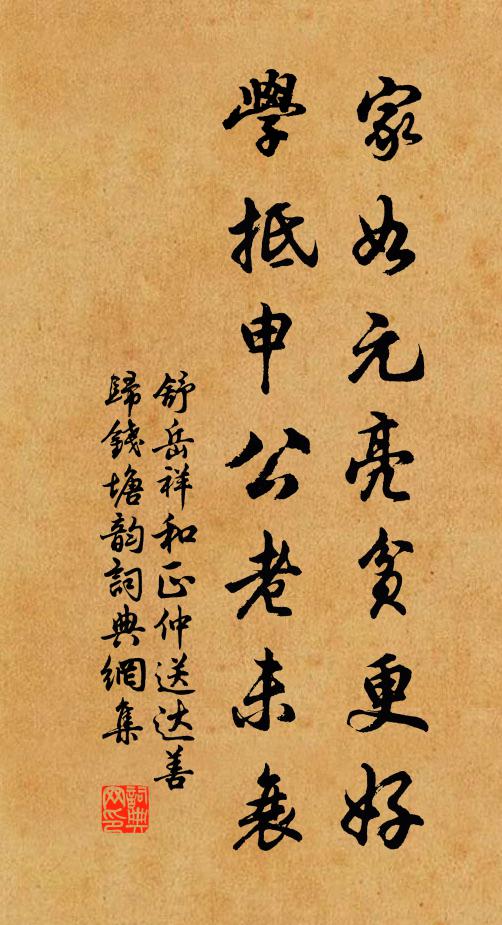 家如元亮貧更好
學抵申公老未衰
舒岳祥和正仲送达善
歸錢塘韵詞典網集
詞典
网印